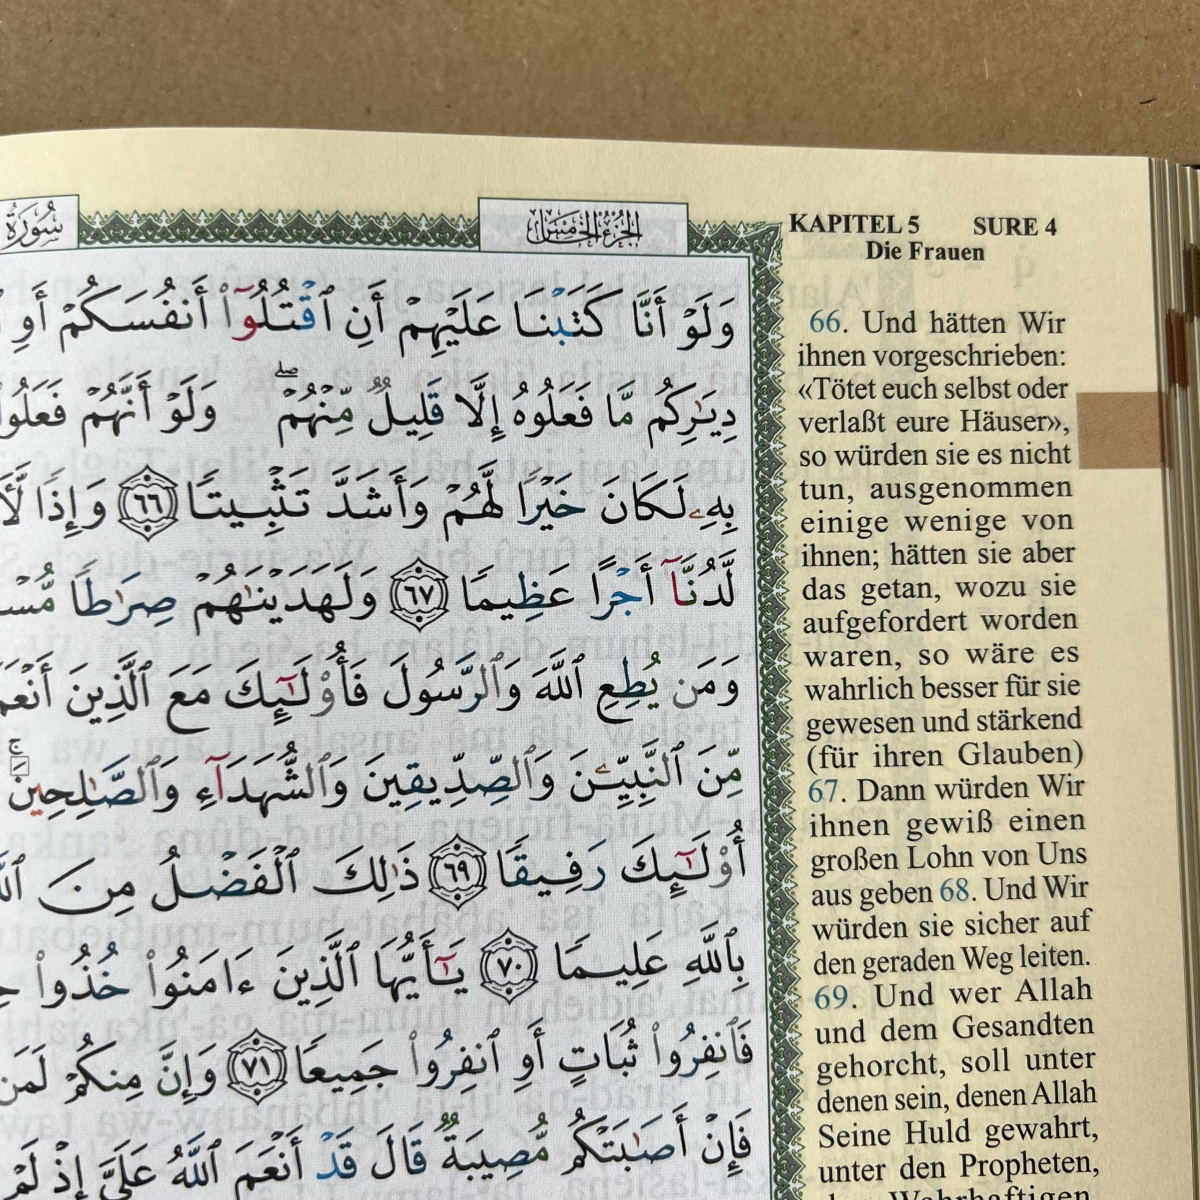 سُورَةُ
الجُزْءُ الْخَامِسُ
وَلَوْ أَنَّا كَتَبْنَا عَلَيْهِمْ أَنِ ٱقْتُلُوٓا۟ أَنفُسَكُمْ أَوِ
دِيَـٰرِكُم مَّا فَعَلُوهُ إِلَّا قَلِيلٌ مِّنْهُمْ ۖ وَلَوْ أَنَّهُمْ فَعَلُوا۟
بِهِۦ لَكَانَ خَيْرًا لَّهُمْ وَأَشَدَّ تَثْبِيتًا ٦٦ وَإِذًا لَّـَٔا
لَّدُنَّآ أَجْرًا عَظِيمًا ٦٧ وَلَهَدَيْنَـٰهُمْ صِرَٰطًا
وَمَن يُطِعِ ٱللَّهَ وَٱلرَّسُولَ فَأُو۟لَـٰٓئِكَ مَعَ ٱلَّذِينَ أَنْعَمَ
مِّنَ ٱلنَّبِيِّـۧنَ وَٱلصِّدِّيقِينَ وَٱلشُّهَدَآءِ وَٱلصَّـٰلِحِينَ ۚ
أُو۟لَـٰٓئِكَ رَفِيقًا ٦٩ ذَٰلِكَ ٱلْفَضْلُ مِنَ
بِٱللَّهِ عَلِيمًا ٧٠ يَـٰٓأَيُّهَا ٱلَّذِينَ ءَامَنُوا۟ خُذُوا۟
فَٱنفِرُوا۟ ثُبَاتٍ أَوِ ٱنفِرُوا۟ جَمِيعًا ٧١ وَإِنَّ مِنكُمْ لَمَن
فَإِنْ أَصَـٰبَتْكُم مُّصِيبَةٌ قَالَ قَدْ أَنْعَمَ ٱللَّهُ عَلَىَّ إِذْ لَمْ
KAPITEL 5 SURE 4
Die Frauen
66. Und hätten Wir
ihnen vorgeschrieben:
«Tötet euch selbst oder
verlaßt eure Häuser»,
so würden sie es nicht
tun, ausgenommen
einige wenige von
ihnen; hätten sie aber
das getan, wozu sie
aufgefordert worden
waren, so wäre es
wahrlich besser für sie
gewesen und stärkend
(für ihren Glauben)
67. Dann würden Wir
ihnen gewiß einen
großen Lohn von Uns
aus geben 68. Und Wir
würden sie sicher auf
den geraden Weg leiten.
69. Und wer Allah
und dem Gesandten
gehorcht, soll unter
denen sein, denen Allah
Seine Huld gewahrt,
unter den Propheten,
den Wahrhaftigen